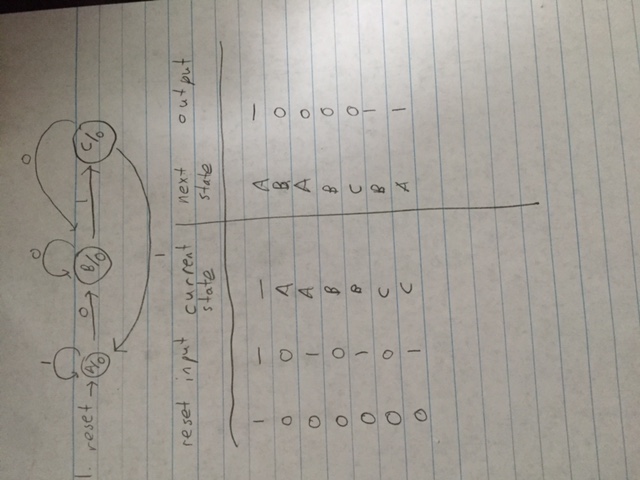 0
1 0
1. reset → A/0 0 B/0 1 C/0
1
reset input current state next state output
1 — — A —
0 0 A B 0
0 1 A A 0
0 0 B B 0
0 1 B C 0
0 0 C B 1
0 1 C A 1